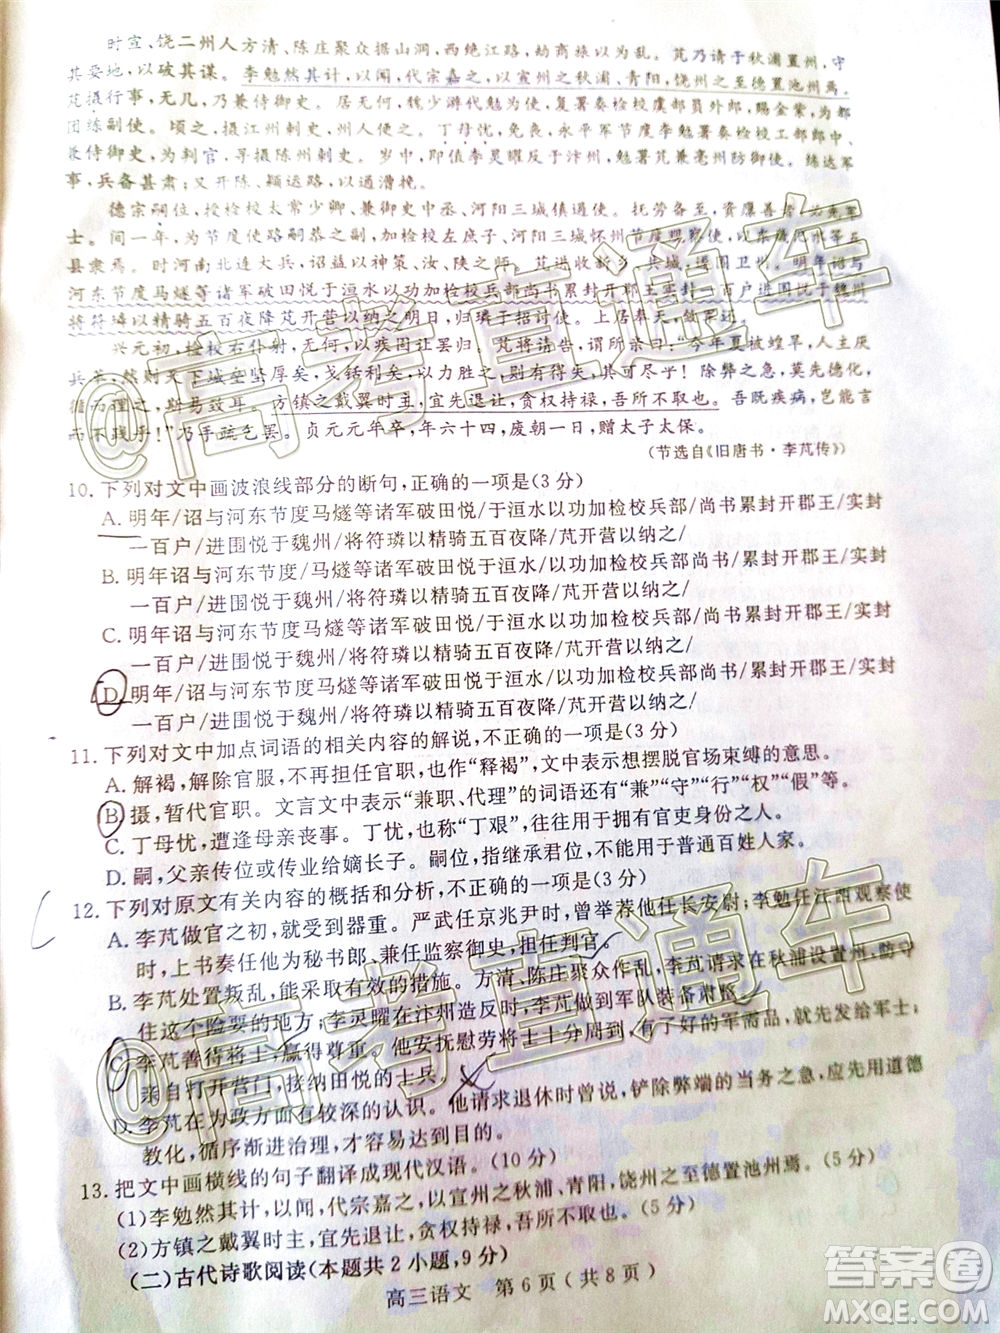 时宣、饶二州人方清、陈庄聚众据山洞，西绝江路，劫商旅以为乱。芃乃请于秋浦置州，守
其要地，以破其谋。李勉然其计，以闻，代宗嘉之，以宣州之秋浦、青阳，饶州之至德置池州焉。
芃摄行事，无几，乃兼侍御史。居无何，魏少游代勉为使，复署奏检校虞部员外郎，赐金紫，为都
团练副使。顷之，摄江州刺史，州人便之。丁母忧，免丧，永平军节度李勉署奏检校工部郎中，
兼侍御史，为判官，寻摄陈州刺史。岁中，即值李灵曜反于汴州，勉署芃兼亳州防御使。练达军
事，兵备甚肃；又开陈、颍运路，以通漕挽。
德宗嗣位，授检校太常少卿、兼御史中丞，河阳三城镇遏使。抚劳备至，资廪善者必先军
士。间一年，为节度使路嗣恭之副，加检校左庶子、河阳三城怀州节度使，
县隶焉。时河南北连大兵，诏益以神策、汝、陕之师。芃进收新乡、共城，遂围卫州。明年诏与
河东节度马燧等诸军破田悦于洹水以功加检校兵部尚书累封开郡王实封一百户进围悦于魏州
将符璘以精骑五百夜降芃开营以纳之明日，归于招讨使。上居奉天，敛军还。
兴元初，检校右仆射，无何，以疾固让罢归。芃将请告，谓所亲曰：“今年夏被蝗旱，人主厌
兵革，然则天下城空坚厚矣，戈铤利矣，以力胜之，则有得失，其可尽乎！除弊之急，莫先德化，
循而理之，斯易致耳。方镇之戴翼时主，宜先退让，贪权持禄，吾所不取也。吾既疾病，岂能言
而不践乎！”乃手疏乞罢。贞元元年卒，年六十四，废朝一日，赠太子太保。
（节选自《旧唐书·李芃传》）
10. 下列对文中画波浪线部分的断句，正确的一项是(3 分)
A. 明年/诏与河东节度马燧等诸军破田悦/于洹水以功加检校兵部/尚书累封开郡王/实封
一百户/进围悦于魏州/将符璘以精骑五百夜降/芃开营以纳之/
B. 明年诏与河东节度/马燧等诸军破田悦于洹水/以功加检校兵部尚书/累封开郡王/实封
一百户/进围悦于魏州/将符璘以精骑五百夜降/芃开营以纳之/
C. 明年诏与河东节度马燧等诸军破田悦/于洹水以功加检校兵部/尚书累封开郡王/实封
一百户/进围悦于魏州/将符璘以精骑五百夜降/芃开营以纳之/
D. 明年/诏与河东节度马燧等诸军破田悦于洹水/以功加检校兵部尚书/累封开郡王/实封
一百户/进围悦于魏州/将符璘以精骑五百夜降/芃开营以纳之/
11. 下列对文中加点词语的相关内容的解说，不正确的一项是(3 分)
A. 解褐，解除官服，不再担任官职，也作“释褐”，大意为表示想摆脱官场束缚的意思。
B. 摄，暂代官职。文言文中表示“兼职、代理”的词语还有“兼”“守”“行”“权”“假”等。
C. 丁母忧，遭逢母亲丧事。丁忧，也称“丁艰”，在古代多用于拥有官吏身份之人。
D. 嗣，父亲传位给予嫡长子。嗣位，指继承君位，不用于普通百姓人家。
12. 下列对原文有关内容的概括和分析，不正确的一项是(3 分)
A. 李芃做官之初，就受到器重。严武任京兆尹时，曾举荐他担任长安尉；李勉任江西观察使
时，上书奏任他为秘书郎、兼任监察御史，担任判官。
B. 李芃处置叛乱，能采取有效的措施。方清、陈庄聚众作乱，李芃请求在秋浦设置州，并守
住这个险要的地方；李灵曜在汴州造反时，李芃做到军队装备肃整。
C. 李芃善待将士，赢得尊重。他安抚慰劳将士十分周到，有了好的军需品，就先发给军士；
亲自打开营门，接纳田悦的士兵。
D. 李芃在为政方面有较深的认识。他请求退休时曾说，铲除弊端的当务之急，应先用道德
教化，循序渐进治理，才容易达到目的。
13. 把文中画横线的句子翻译成现代汉语。(10 分)
(1)李勉然其计，以闻，代宗嘉之，以宣州之秋浦、青阳，饶州之至德置池州焉。(5 分)
(2)方镇之戴翼时主，宜先退让，贪权持禄，吾所不取也。(5 分)
(二)古代诗歌阅读(本题共 2 小题，9 分)
高三语文　第 6 页（共 8 页）
@高考直通车
@高考直通车
答案圈
MXQE.COM